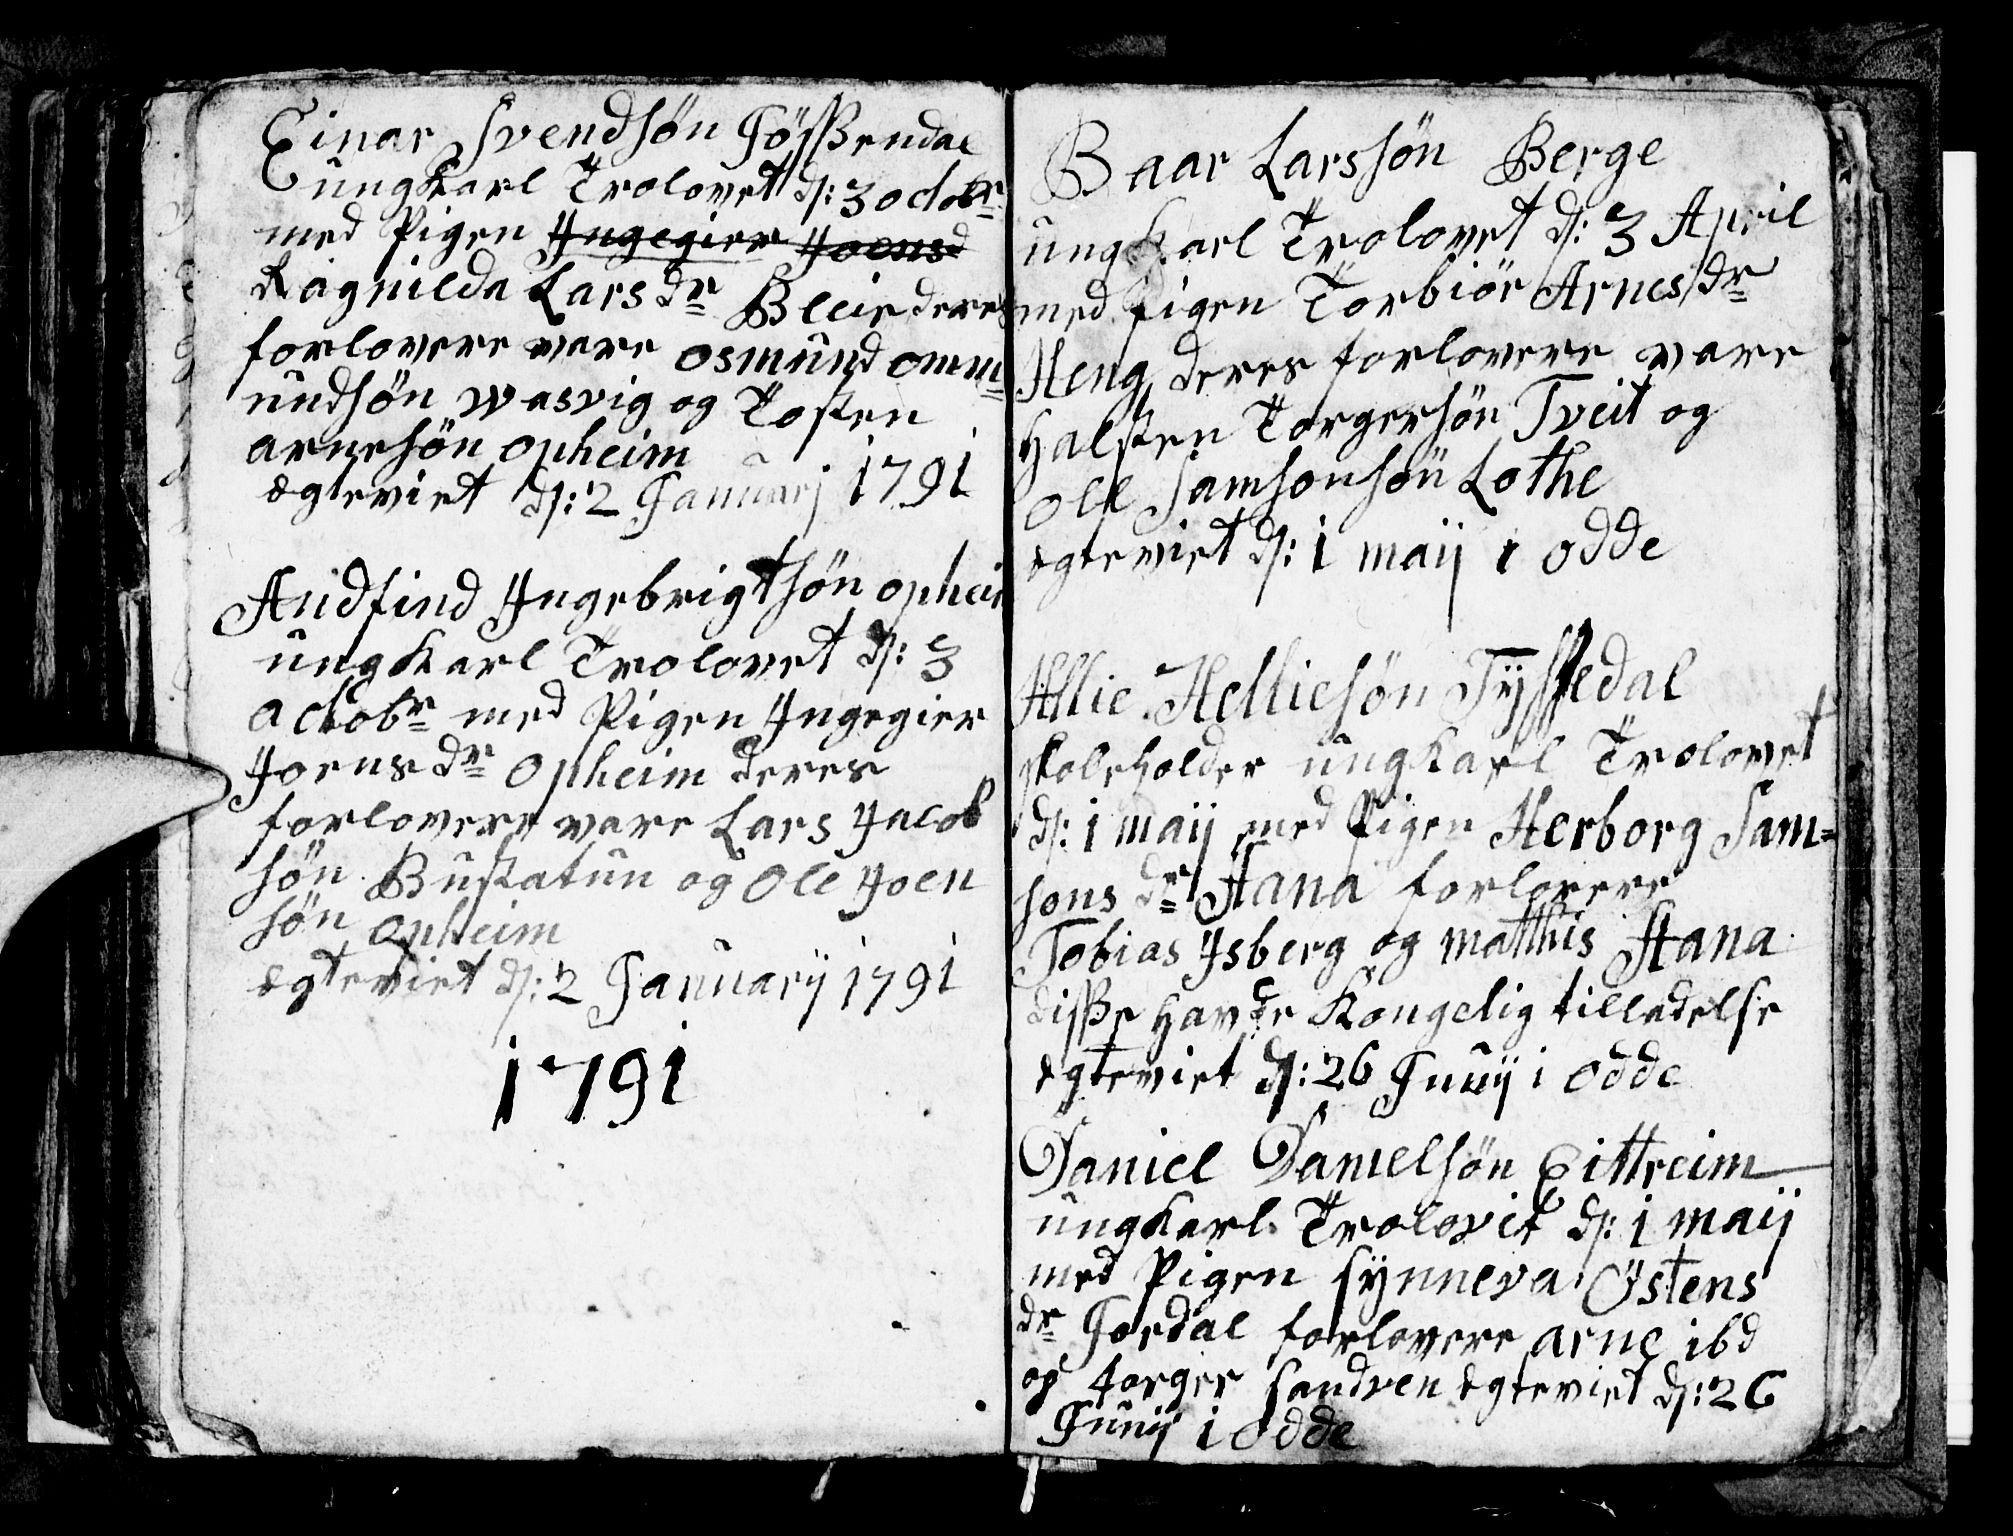 Einar Svendsøn Jøssendal
ungKarl Trolovet d: 3 octobr
med Pigen Yngegier Joens d
Ragnilda Lars dr Bleie deres
forlovere vare osmund omm=
undsøn wasvig og Tosten
arnesøn opheim
egteviet d: 2 January 1791
Andfind Yngebrigtsøn opheim
ungKarl Trolovet d: 3
octobr med Pigen Yngegier
Joens dr opheim deres
forlovere vare Lars Jacob
søn Bustatun og Ole Joen
søn opheim
egteviet d: 2 Januarij 1791
1791
Baar Larssøn Berge
ungKarl Trolovet d: 3 April
med pigen Torbiør Arnes dr
Heng deres forlovere vare
Halsten Torgersøn Tveit og
Ole Samsonsøn Lothe
egteviet d: 1 maij i odde
Hellie Helliesøn Tyssedal
skoleholder ungKarl Trolovet
d: 1 maij med Pigen Herborg Sam=
sons dr Aana forlovere
Tobias Ysberg og matthis Aana
disse havde Kongelig tilladelse
egteviet d: 26 Junij i odde
Daniel Danielsøn Eittreim
ungKarl Trolovet d: 1 maij
med Pigen synneva Østens
dr Jordal forlovere arne ibd
og Torger sandven egteviet d: 26
Junij i odde